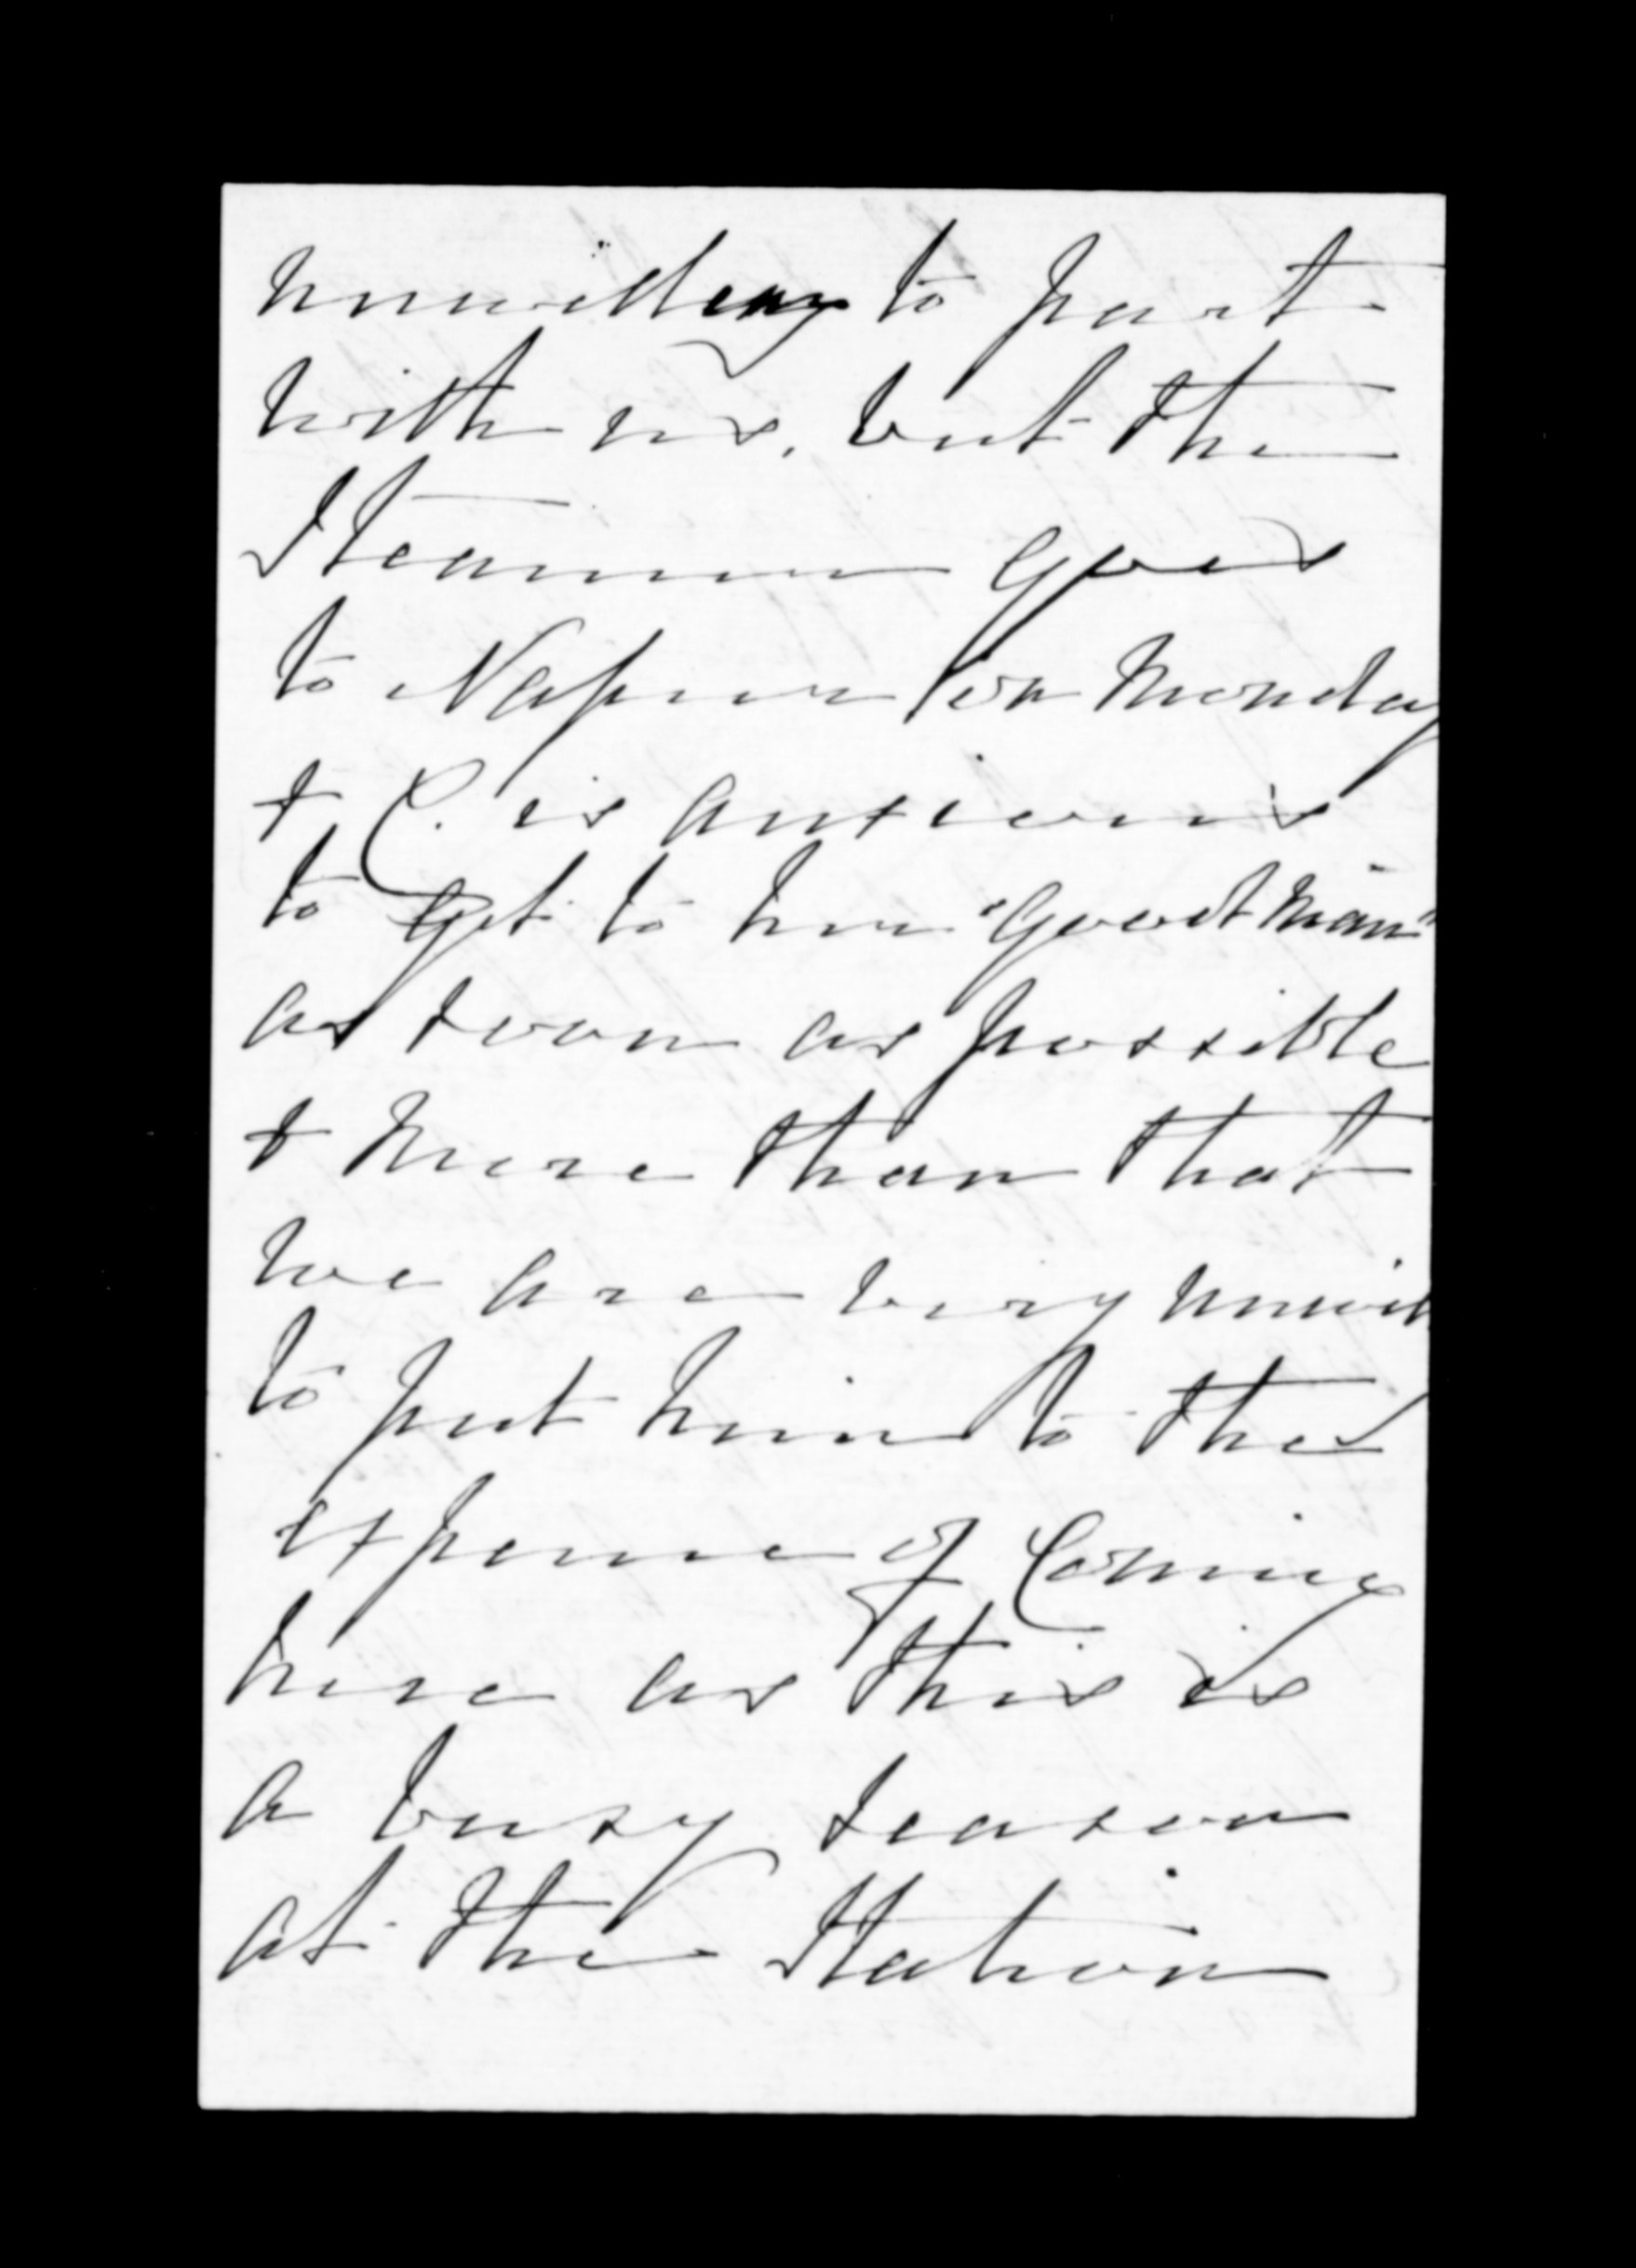 unwilling to part
with us, but the
Steamer goes
to Napier on Monday
& C. is anxious
to get to her "Good Man"
as soon as possible
& more than that
we are very unwill
to put him to the
expense of coming
here as this is
a busy season
at the Station